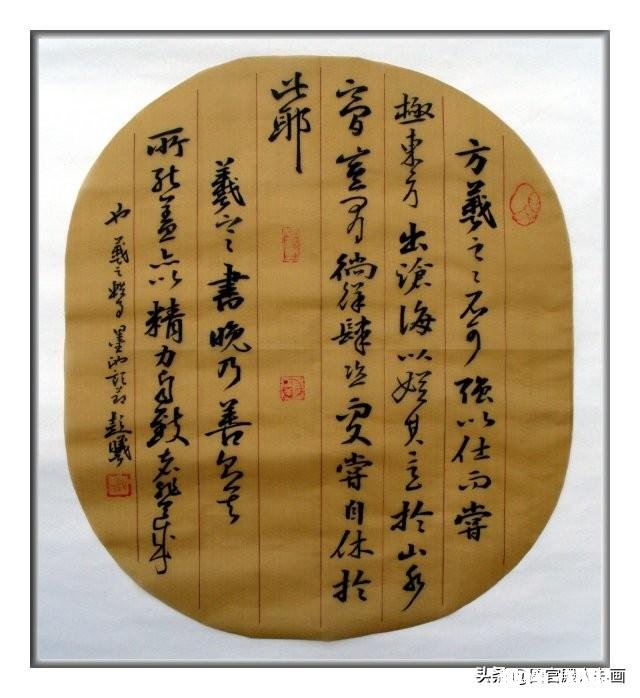 方羲之之不可強以仕而嘗
極東方出滄海以娛其意於山水
之間豈有徜徉肆恣又嘗自休於
此耶
羲之之書晚乃善則其
所能蓋亦以精力自致者非天成
也 墨池記
头条